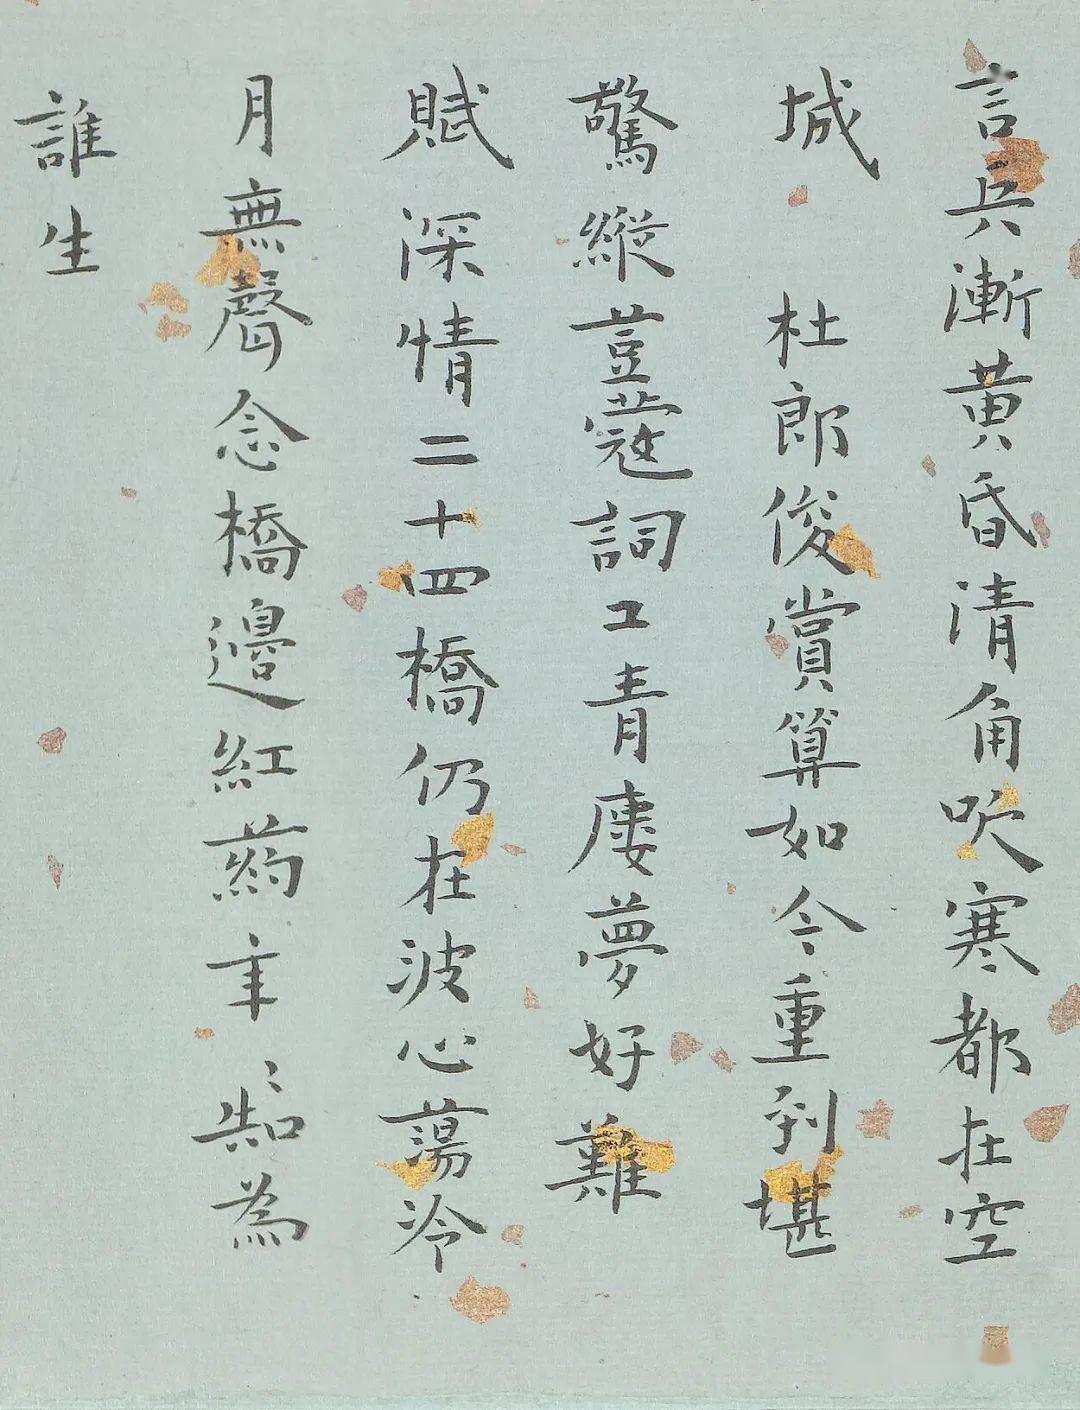 言兵漸黃昏清角吹寒都在空
城 杜郎俊賞算如今重到堪
驚縱荳蔻詞工青廔夢好難
賦深情二十四橋仍在波心蕩冷
月無聲念橋邊紅葯年〻知為
誰生